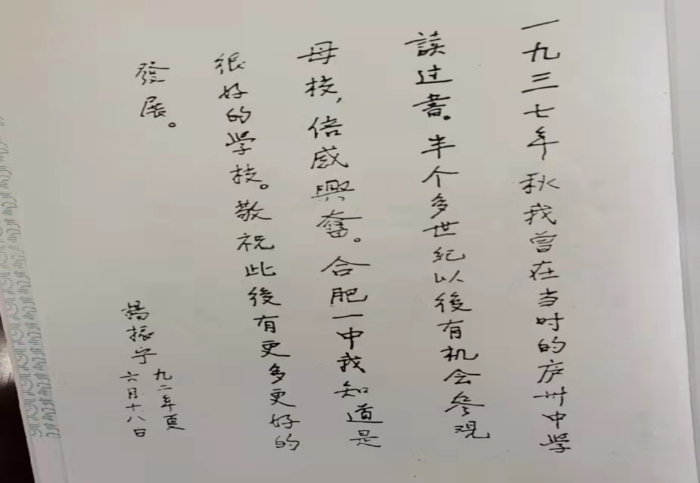 一九三七年秋我曾在当时的庐州中学
读过書。半个多世纪以後有机会参观
母校，倍感興奮。合肥一中我知道是
很好的学校。敬祝此後有更多更好的
發展。
楊振宁 九二年夏
六月十八日